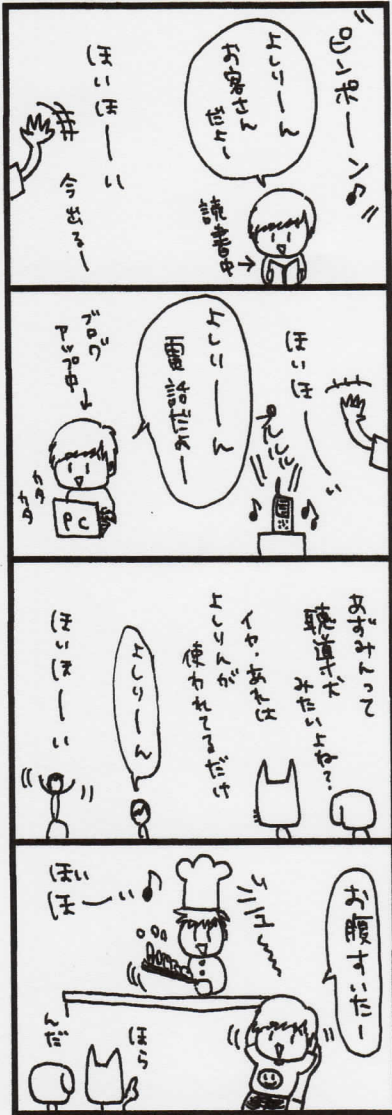 ピンポーン♪
よしりーん
お客さん
だよー
読書中→
ほいほーい
今出るー
ほいほーい
プルルルル
よしりーん
電話だよー
ブログ
アップ中→
カタ
カタ
PC
あずみんって
聴導犬
みたいよね?
イヤ・あれは
よしりんが
使われてるだけ
よしりーん
ほいほーい
お腹すいたー
ジュ〜
ほい
ほーい♪
ほら
んだ